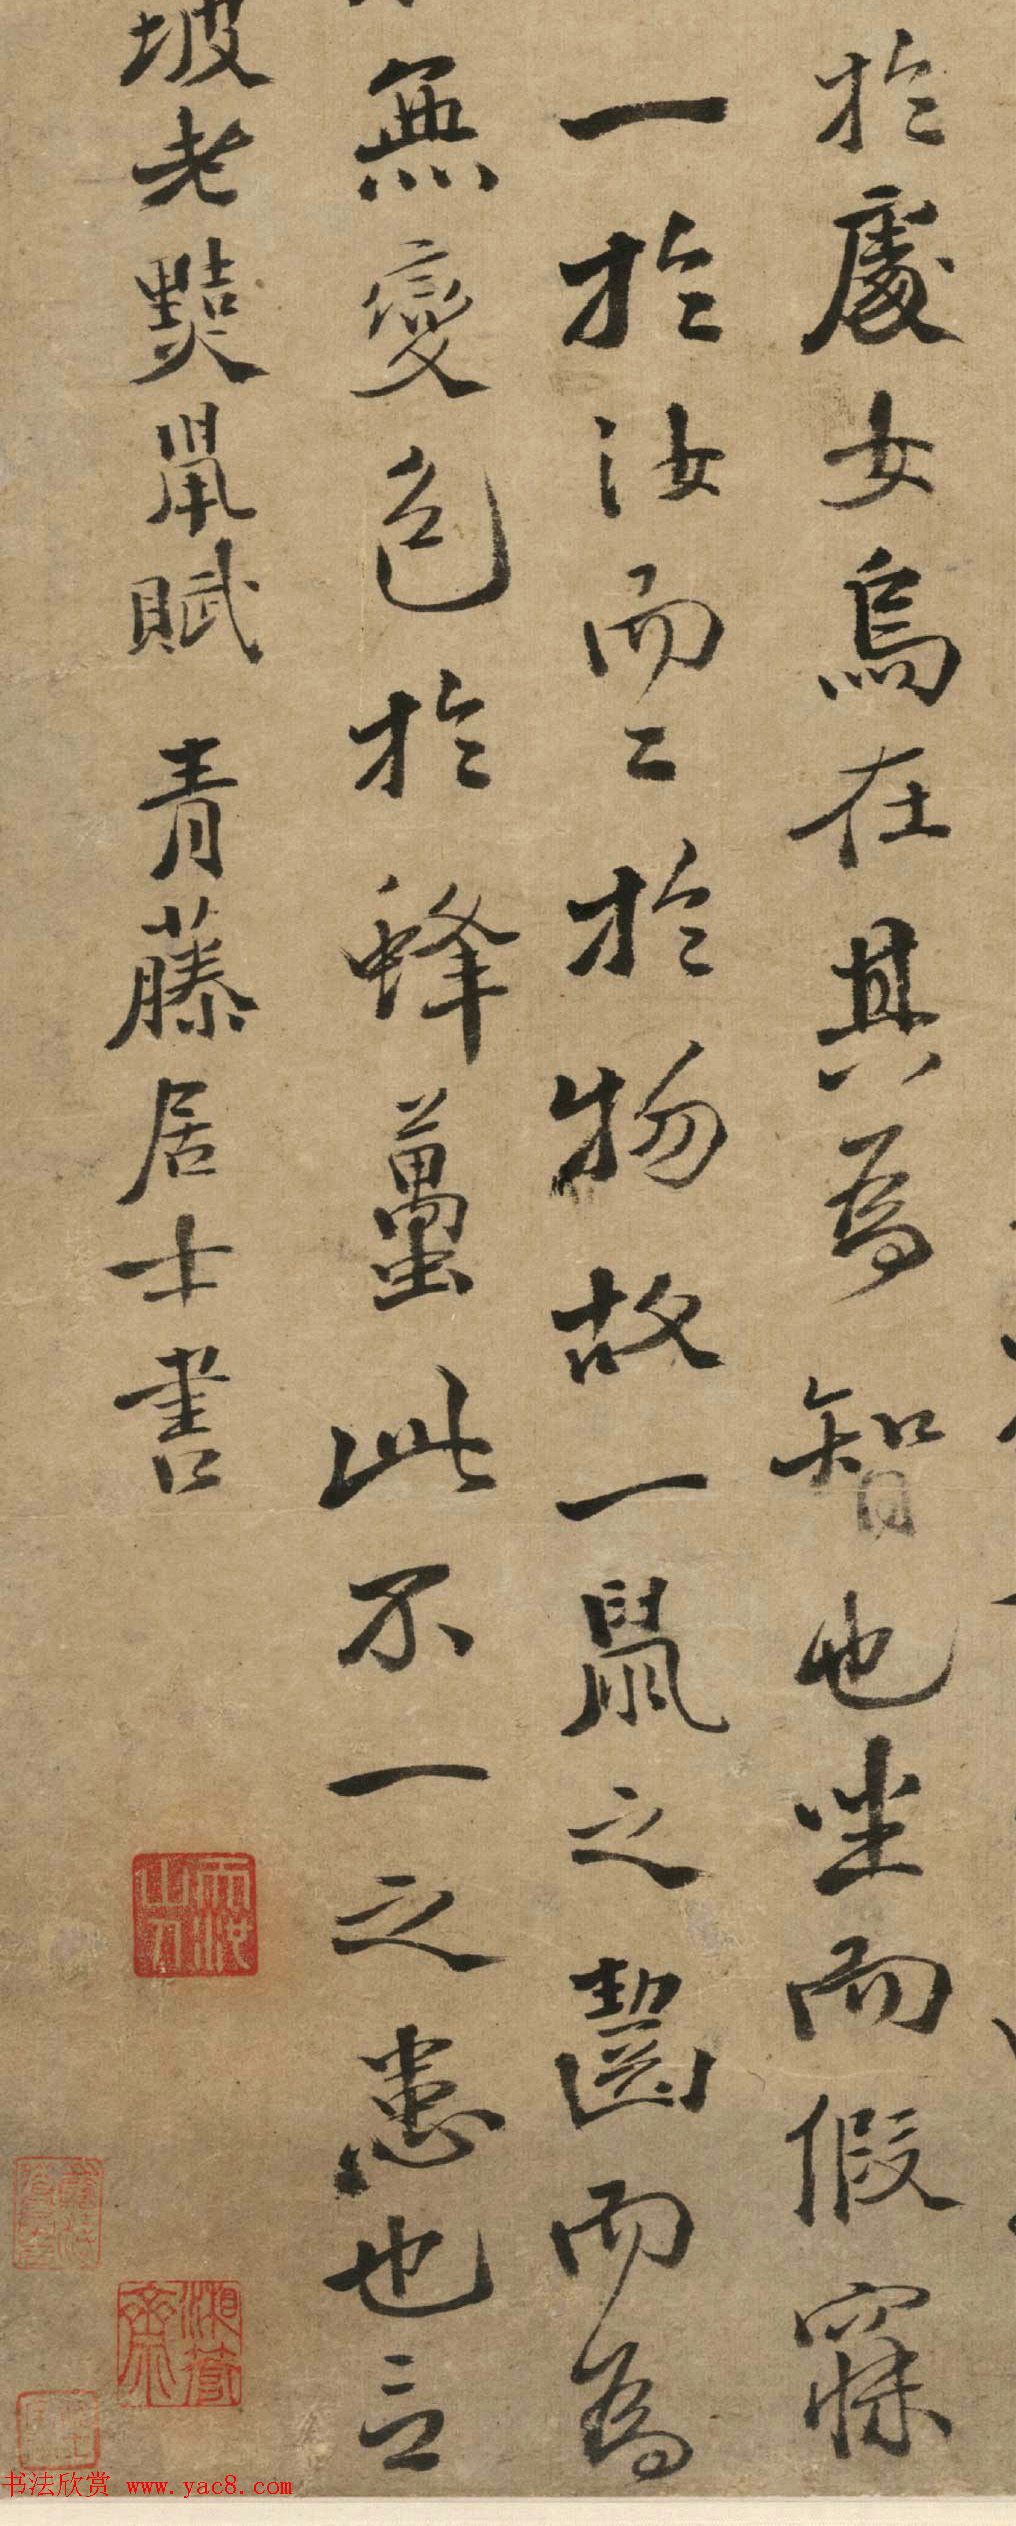 於處女烏在其為智也坐而假寐
一於汝而二於物故一鼠之齧而為
無變色於蜂蠆此不一之患也言
坡老黠鼠賦 青藤居士書
湘管齋
书法欣赏 www.yac8.com